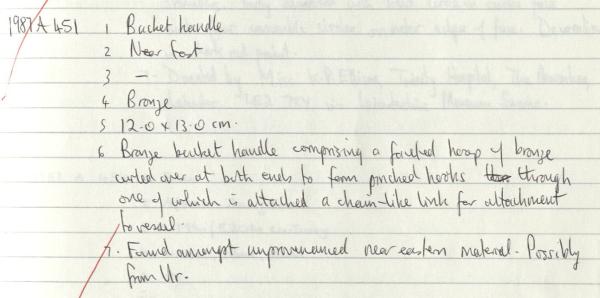 1987 A 451 1 Bucket handle
2 Near East
3 —
4 Bronze
5 12.0 x 13.0 cm.
6 Bronze bucket handle comprising a faceted hoop of bronze
curled over at both ends to form pinched hooks through
one of which is attached a chain-like link for attachment
to vessel.
7. Found amongst unprovenanced near eastern material. Possibly
from Ur.